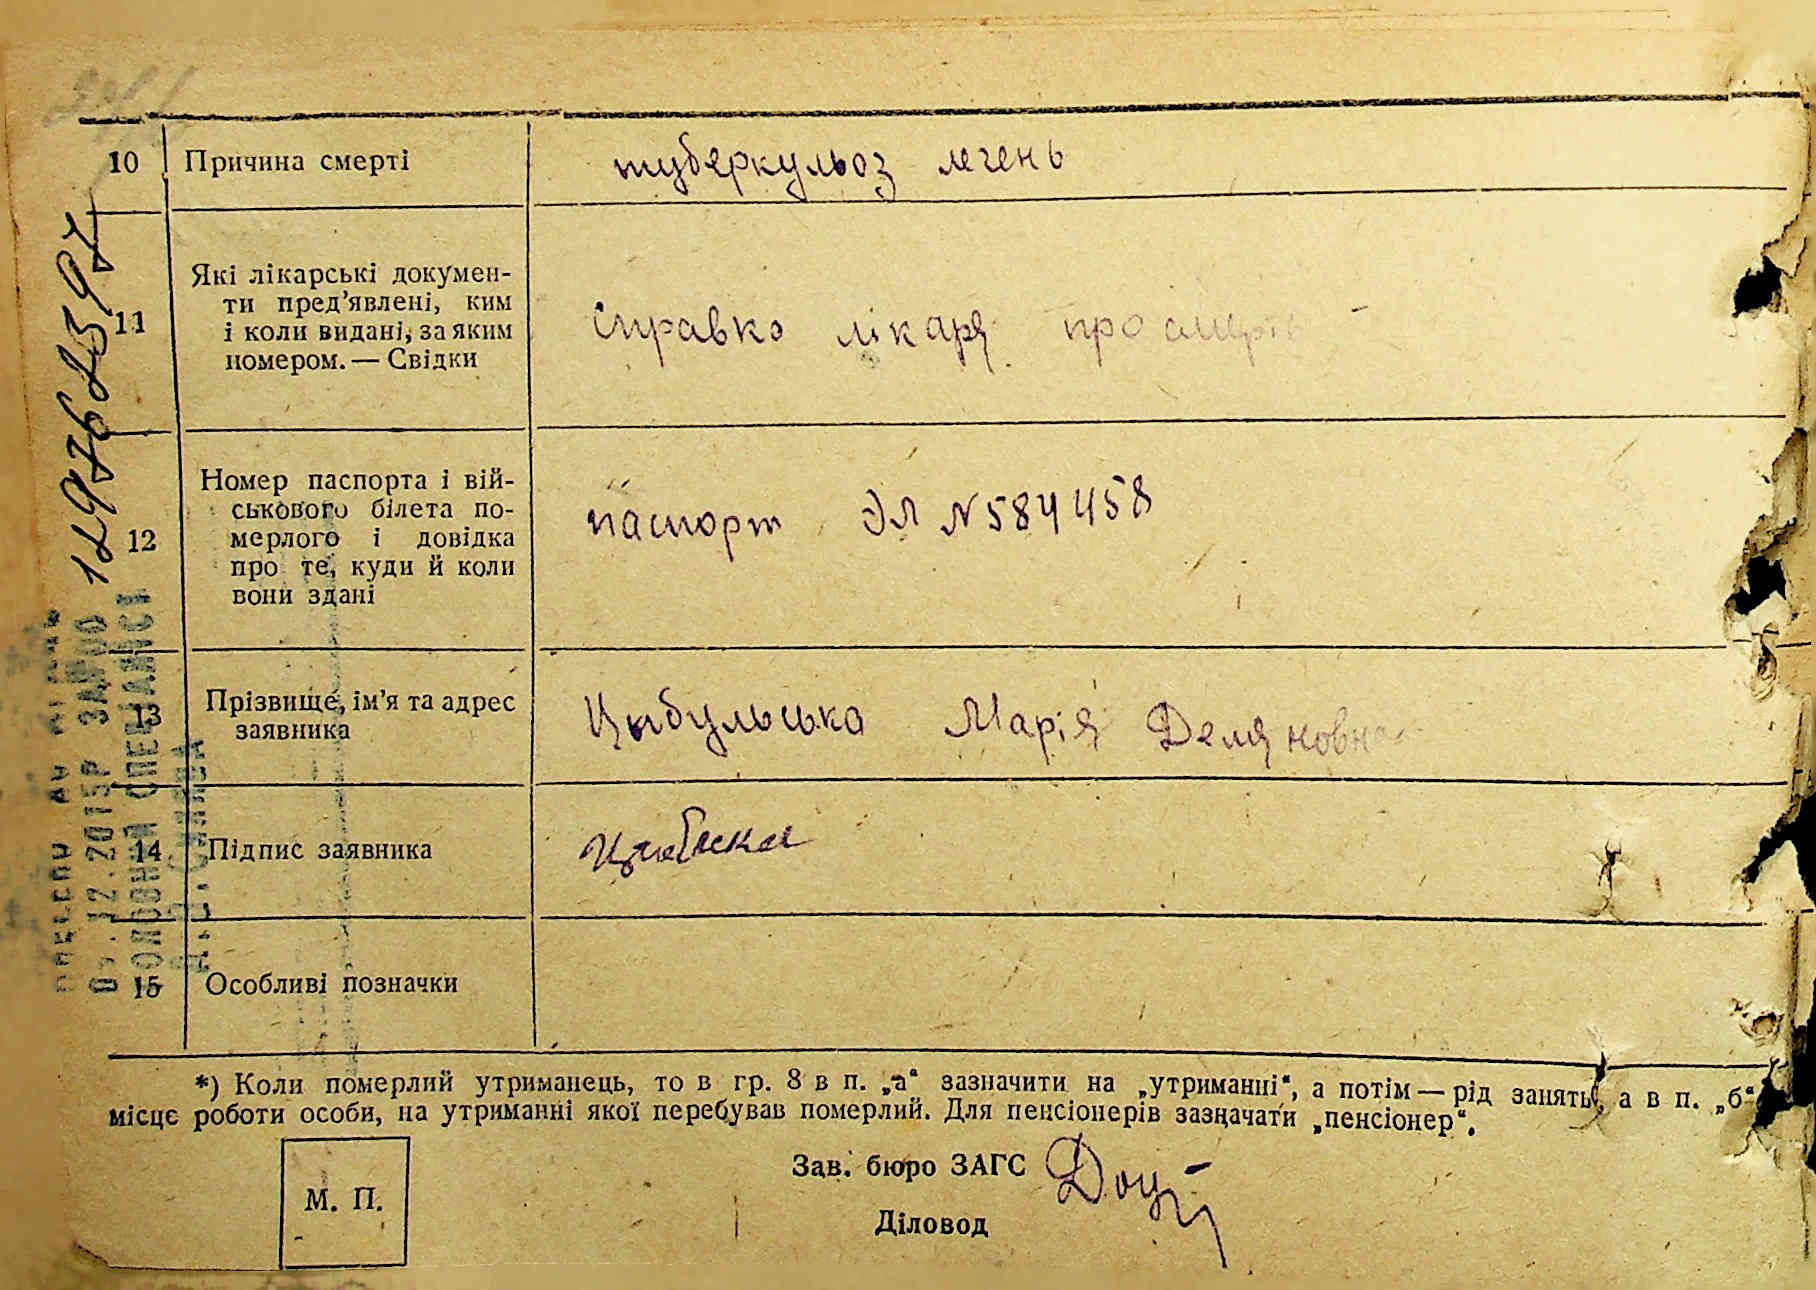 10 Причина смерті туберкульоз легень
11 Які лікарські докумен-
ти пред'явлені, ким
і коли видані, за яким
номером. — Свідки
справка лікаря про смерть
12 Номер паспорта і вій-
ськового білета по-
мерлого і довідка
про те, куди й коли
вони здані
паспорт ЭЛ N 584458
13 Прізвище, ім'я та адрес
заявника
Цыбульська Марія
14 Підпис заявника
15 Особливі позначки
*) Коли померлий утриманець, то в гр. 8 в п. „а“ зазначити на „утриманні“, а потім — рід занять, а в п. „б“
місце роботи особи, на утриманні якої перебував померлий. Для пенсіонерів зазначати „пенсіонер“.
М. П.
Зав. бюро ЗАГС
Діловод